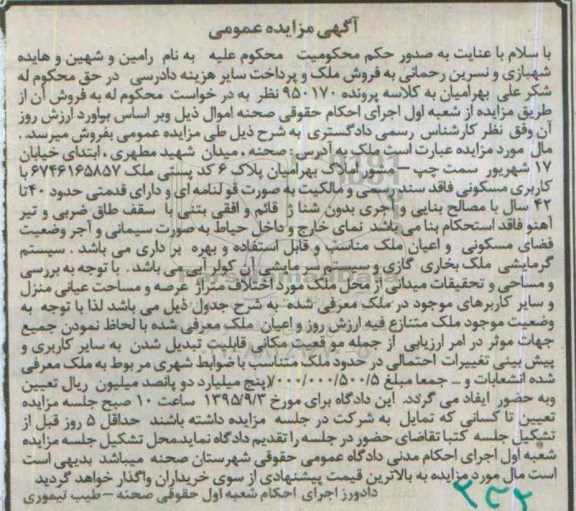 آگهی مزایده عمومی
با سلام با عنایت به صدور حکم محکومیت محکوم علیه به نام رامین و شهین و هایده
شهبازی و نسرین رحمانی به فروش ملک و پرداخت سایر هزینه دادرسی در حق محکوم له
شکر علی بهرامیان به کلاسه پرونده ۹۵۰۱۷۰ نظر به در خواست محکوم له به فروش آن از
طریق مزایده از شعبه اول اجرای احکام حقوقی صحنه اموال ذیل وبر اساس براورد ارزش روز
آن وفق نظر کارشناس رسمی دادگستری به شرح ذیل طی مزایده عمومی بفروش میرسد .
مال مورد مزایده عبارت است ملک به آدرس : صحنه ، میدان شهید مطهری ، ابتدای خیابان
۱۷ شهریور سمت چپ – منشور املاک بهرامیان پلاک ۶ کد پستی ملک ۶۷۴۶۱۶۵۸۵۷ با
کاربری مسکونی فاقد سند رسمی و مالکیت به صورت قولنامه ای و دارای قدمتی حدود ۴۰ تا
۴۲ سال با مصالح بنایی و آجری بدون شنا ژ قائم و افقی بتنی با سقف طاق ضربی و تیر
آهنو فاقد استحکام بنا می باشد نمای خارج و داخل حیاط به صورت سیمانی و آجر وضعیت
فضای مسکونی و اعیان ملک مناسب و قابل استفاده و بهره بر داری می باشد . سیستم
گرمایشی ملک بخاری گازی و سیستم سرمایشی آن کولر آبی می باشد . با توجه به بررسی
و مساحی و تحقیقات میدانی از محل ملک مورد اختلاف متراژ عرصه و مساحت عیانی منزل
و سایر کاربرهای موجود در ملک معرفی شده به شرح جدول ذیل می باشد لذا با توجه به
وضعیت موجود ملک متنازع فیه ارزش روز و اعیان ملک معرفی شده با لحاظ نمودن جمیع
جهات موثر در امر ارزیابی از جمله مو قعیت مکانی قابلیت تبدیل شدن به سایر کاربری و
پیش بینی تغییرات احتمالی در حدود ملک متناسب با ضوابط شهری مر بوط به ملک معرفی
شده انشعابات و ... جمعا مبلغ ۷۰۰۰/۰۰۰/۵۰۰/۵پنج میلیارد دو پانصد میلیون ریال تعیین
وبه حضور ایفاد می گردد. این دادگاه برای مورخ ۱۳۹۵/۹/۳ ساعت ۱۰ صبح جلسه مزایده
تعیین تا کسانی که تمایل به شرکت در جلسه مزایده داشته باشند حداقل ۵ روز قبل از
تشکیل جلسه کتبا تقاضای حضور در جلسه را تقدیم دادگاه نماید.محل تشکیل جلسه مزایده
شعبه اول اجرای احکام مدنی دادگاه عمومی حقوقی شهرستان صحنه میباشد بدیهی است
است مال مورد مزایده به بالاترین قیمت پیشنهادی از سوی خریداران واگذار خواهد گردید
دادورز اجرای احکام شعبه اول حقوقی صحنه – طیب تیموری